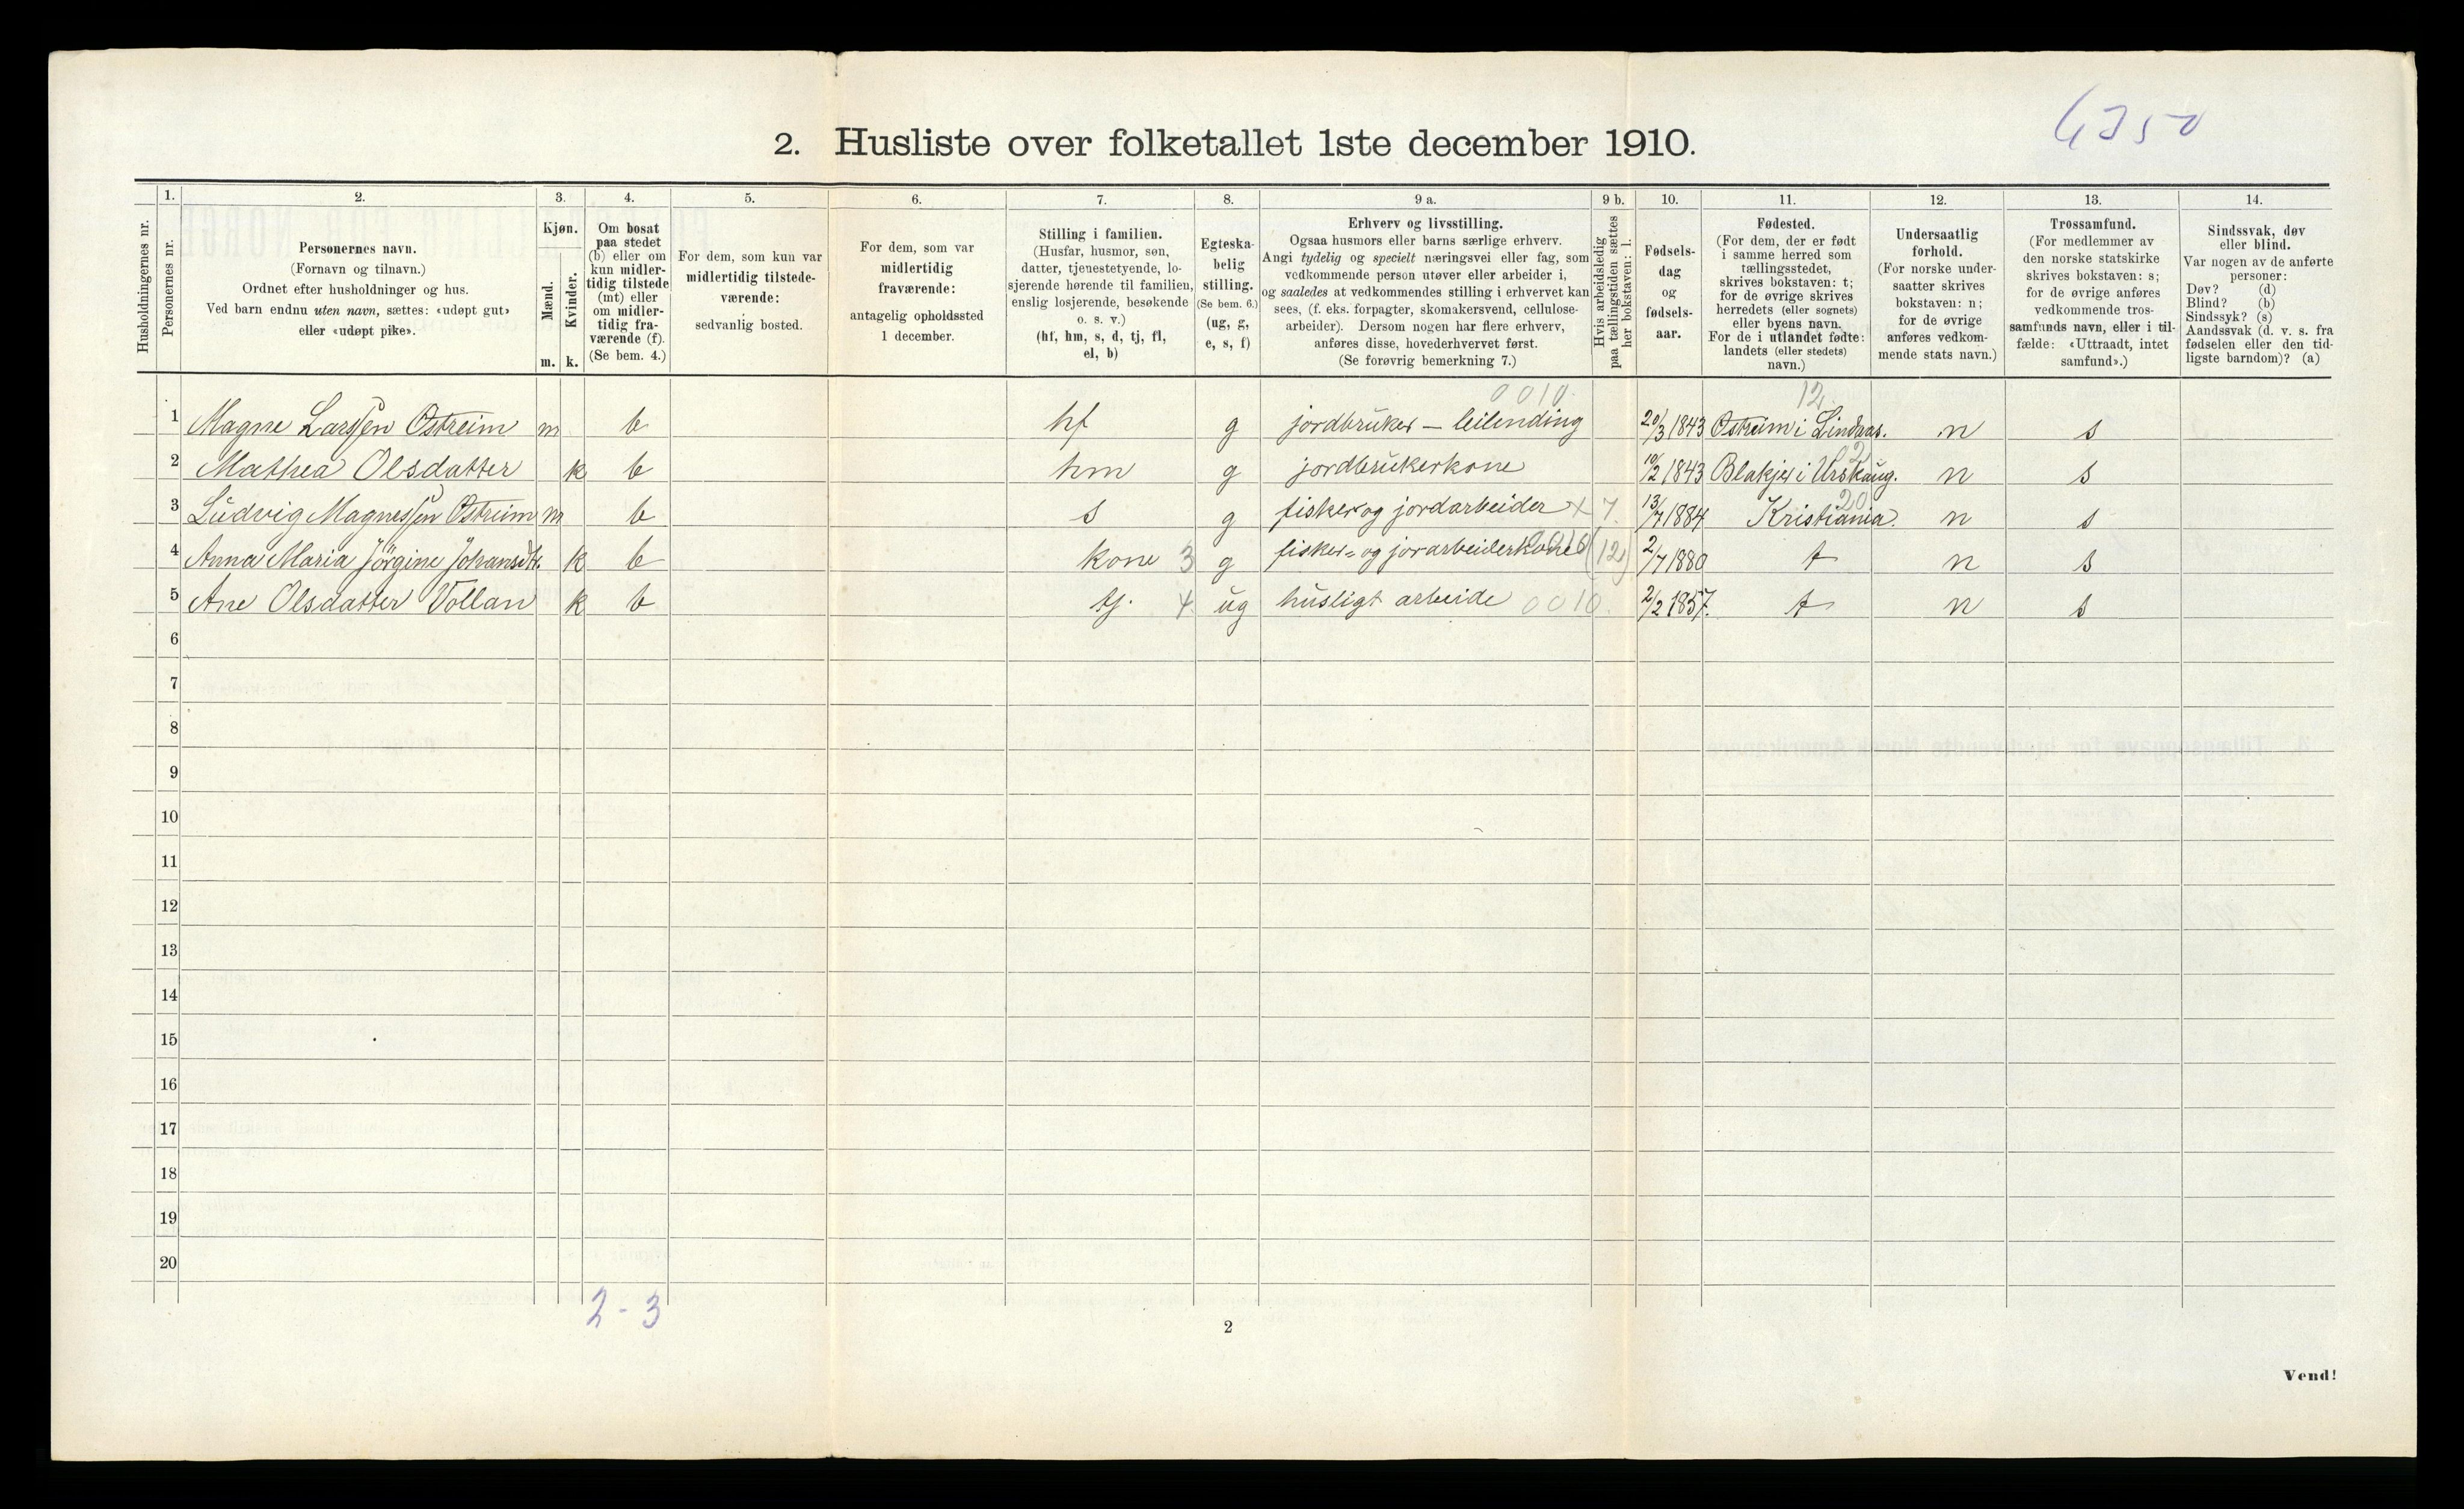 6350
2. Husliste over folketallet 1ste december 1910.
Husholdningernes nr.
1. Personernes nr.
2. Personernes navn.
(Fornavn og tilnavn.)
Ordnet efter husholdninger og hus.
Ved barn endnu uten navn, sættes: «udøpt gut»
eller «udøpt pike».
3. Kjøn.
Mænd. m.
Kvinder. k.
4. Om bosat
paa stedet
(b) eller om
kun midler-
tidig tilstede
(mt) eller
om midler-
tidig fra-
værende (f).
(Se bem. 4.)
5. For dem, som kun var
midlertidig tilstede-
værende:
sedvanlig bosted.
6. For dem, som var
midlertidig
fraværende:
antagelig opholdssted
1 december.
7. Stilling i familien.
(Husfar, husmor, søn,
datter, tjenestetyende, lo-
sjerende hørende til familien,
enslig losjerende, besøkende
o. s. v.)
(hf, hm, s, d, tj, fl,
el, b)
8. Egteska-
belig
stilling.
(Se bem. 6.)
(ug, g,
e, s, f)
9 a. Erhverv og livsstilling.
Ogsaa husmors eller barns særlige erhverv.
Angi tydelig og specielt næringsvei eller fag, som
vedkommende person utøver eller arbeider i,
og saaledes at vedkommendes stilling i erhvervet kan
sees, (f. eks. forpagter, skomakersvend, cellulose-
arbeider). Dersom nogen har flere erhverv,
anføres disse, hovederhvervet først.
(Se forøvrig bemerkning 7.)
9 b. Hvis arbeidsledig
paa tællingstiden sættes
her bokstaven: l.
10. Fødsels-
dag
og
fødsels-
aar.
11. Fødested.
(For dem, der er født
i samme herred som
tællingsstedet,
skrives bokstaven: t;
for de øvrige skrives
herredets (eller sognets)
eller byens navn.
For de i utlandet fødte:
landets (eller stedets)
navn.)
12. Undersaatlig
forhold.
(For norske under-
saatter skrives
bokstaven: n;
for de øvrige
anføres vedkom-
mende stats navn.)
13. Trossamfund.
(For medlemmer av
den norske statskirke
skrives bokstaven: s;
for de øvrige anføres
vedkommende tros-
samfunds navn, eller i til-
fælde: «Uttraadt, intet
samfund».)
14. Sindssvak, døv
eller blind.
Var nogen av de anførte
personer:
Døv? (d)
Blind? (b)
Sindssyk? (s)
Aandssvak (d. v. s. fra
fødselen eller den tid-
ligste barndom)? (a)
0010. 12.
1 Magne Larssen Østreim m b hf g jordbruker - leilending 20/3 1843 Østreim i Lindaas. n s
2 Mathea Olsdatter k b hm g jordbrukerkone 10/2 1843 Blakjer i Urskaug. 02 n s
3 Ludvig Magnessen Østreim m b s g fisker og jordarbeider x 7. 13/7 1884 Kristiania. 20 n s
4 Anna Maria Jörgine Johansdtr. k b kone 3 g fisker= og jorarbeiderkone (12) 2/7 1880 t n s
5 Ane Olsdatter Vollan k b tj. 4. ug husligt arbeide 0010. 2/2 1857. t n s
6
7
8
9
10
11
12
13
14
15
16
17
18
19
20
2 - 3
2
Vend!